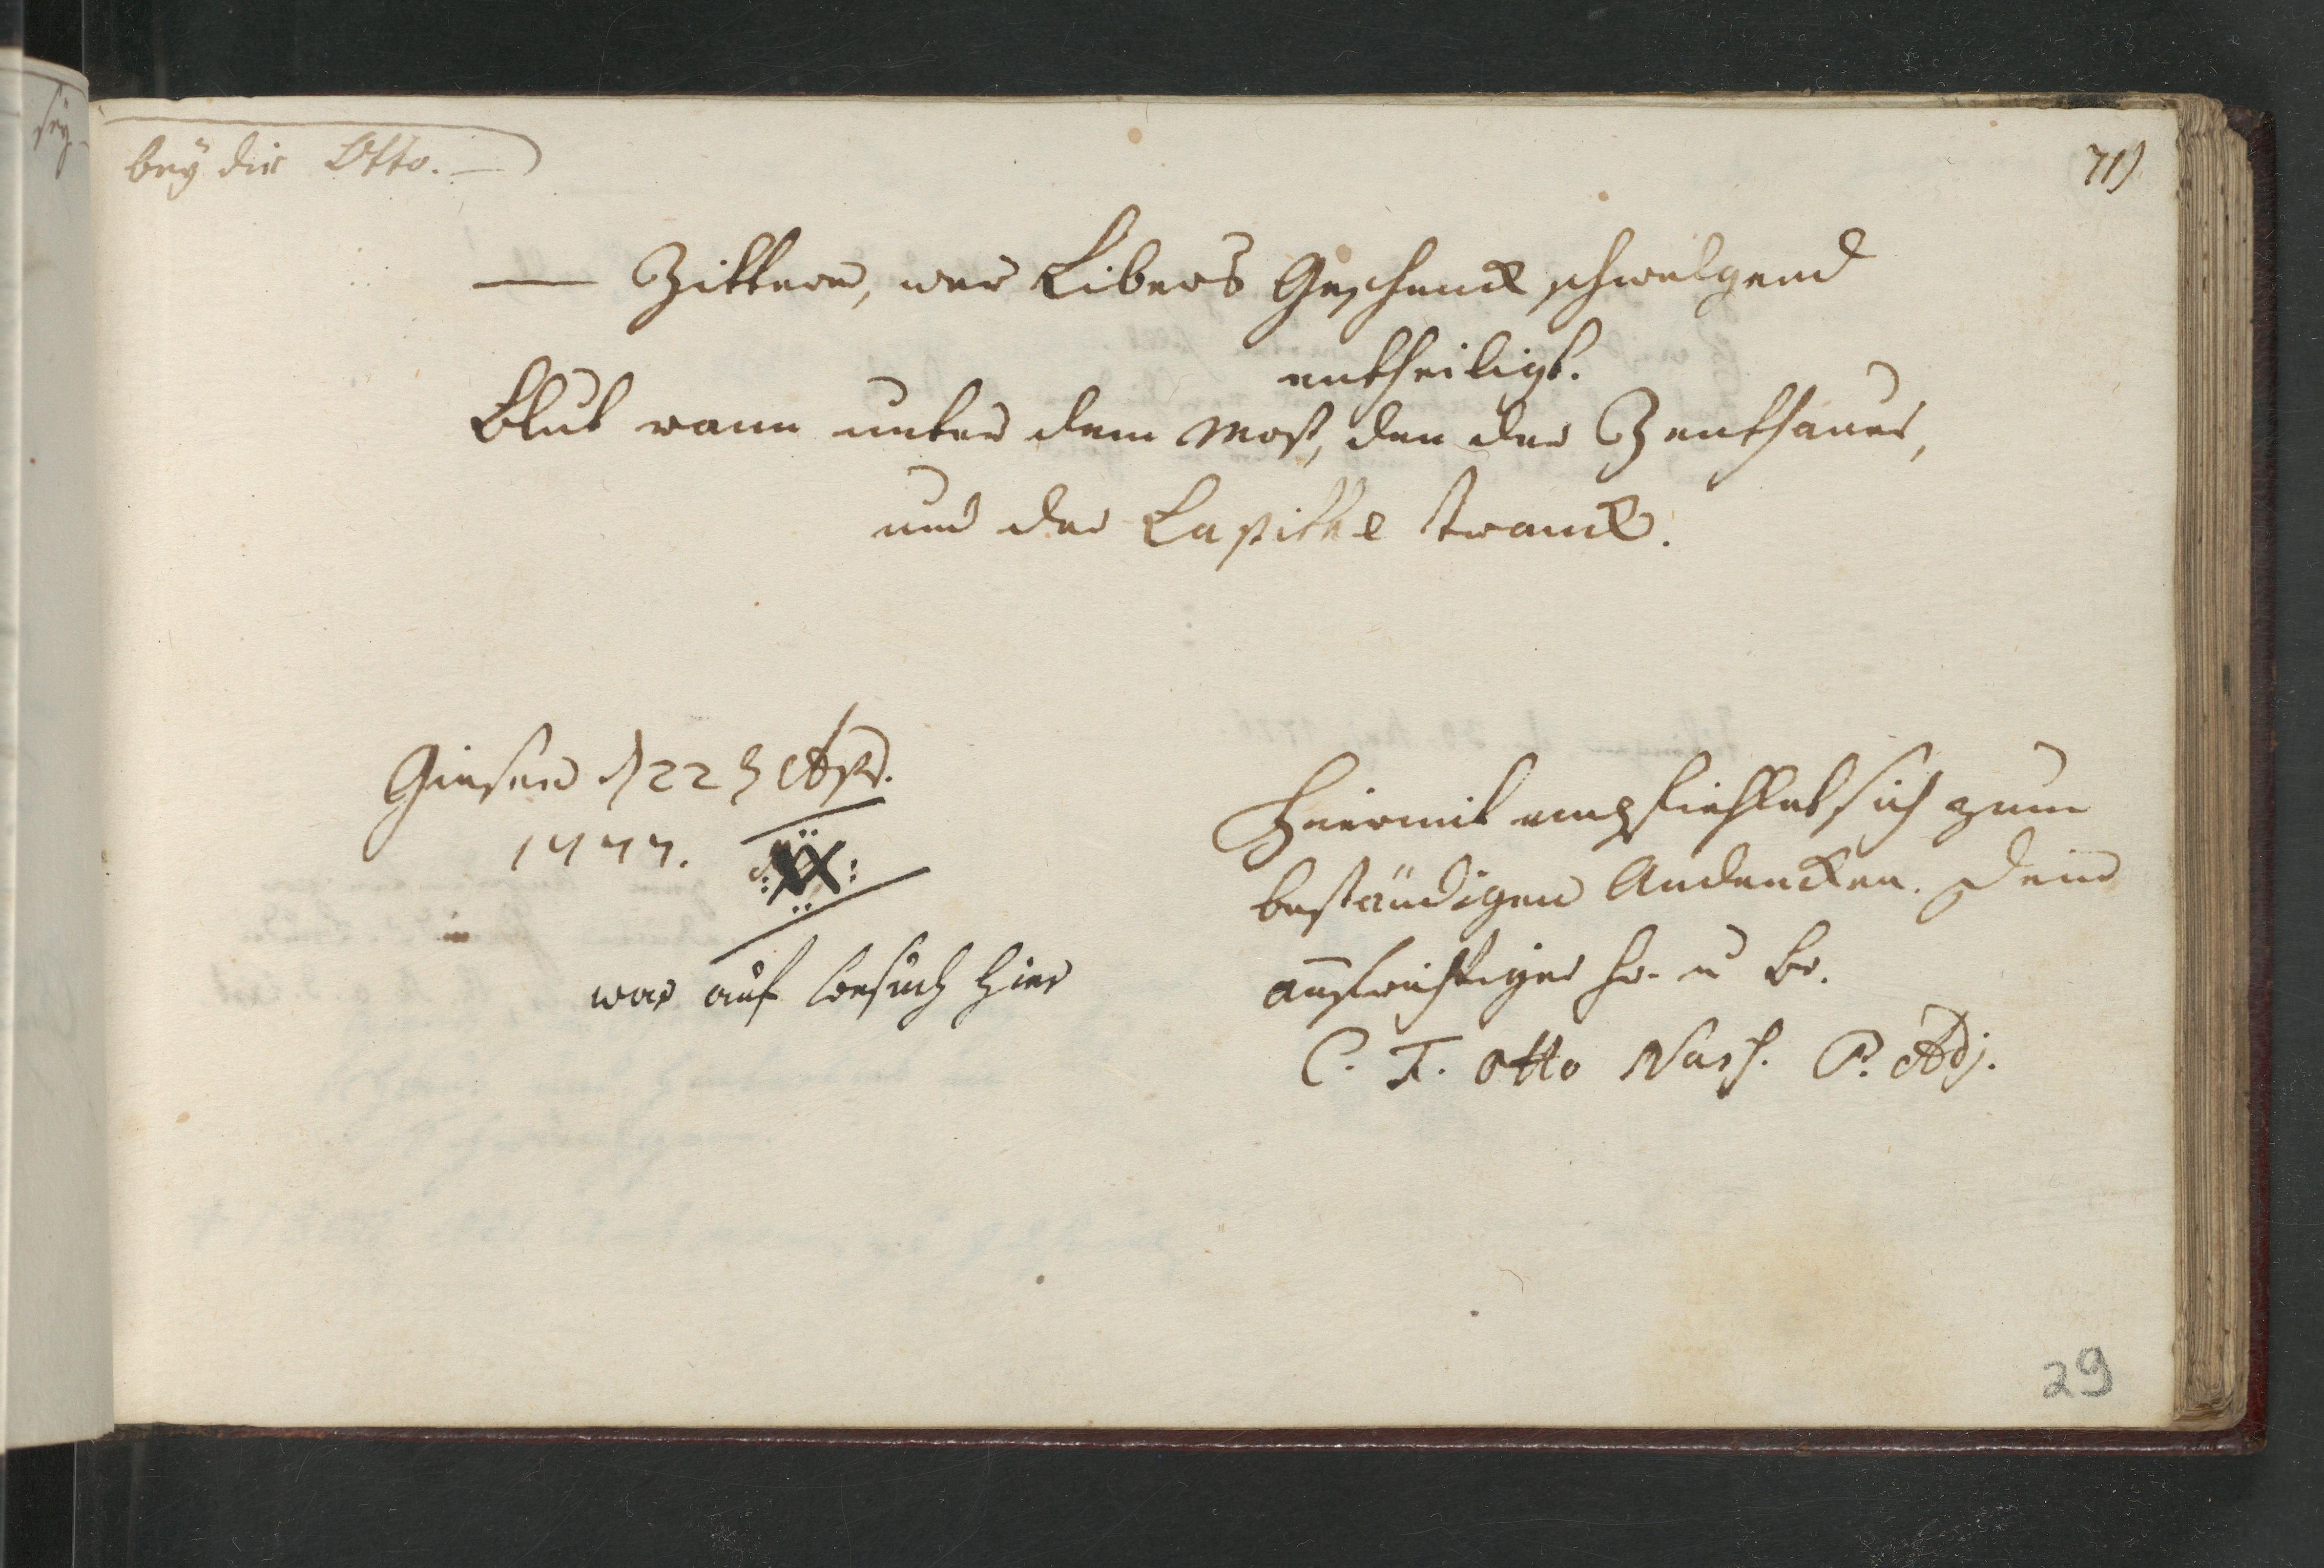 bey dir Otto. —
71)
— Zittere, wer Libers Geschenck schwelgend
entheiligt.
Blut rann unter dem Most, den der Zenthauer,
und der Lapithe tranck.
Giesen d 22 Apr.
1777.
XX
war auf besuch hier
Hiermit empfiehlet sich zum
beständigen Andencken. Dein
aufrichtiger Fr. u Br.
C. F. Otto Nass. P. Adj.
29